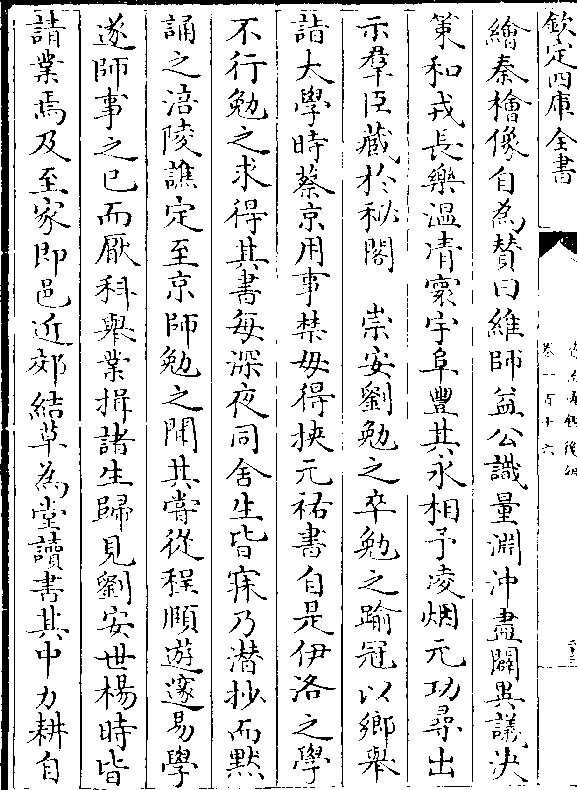 欽定四庫全書
繪秦檜像自為贊曰維師益公識量淵沖盡闢異議決
策和戎長樂温凊寰宇阜豐其永相予凌烟元功尋出
示羣臣藏於秘閣　崇安劉勉之卒勉之踰冠以鄉舉
詣太學時蔡京用事禁毋得挾元祐書自是伊洛之學
不行勉之求得其書每深夜同舍生皆寐乃潜抄而黙
誦之涪陵譙定至京師勉之聞其嘗從程頥遊邃易學
遂師事之已而厭科舉業揖諸生歸見劉安世楊時皆
請業焉及至家即邑近郊結草為堂讀書其中力耕自